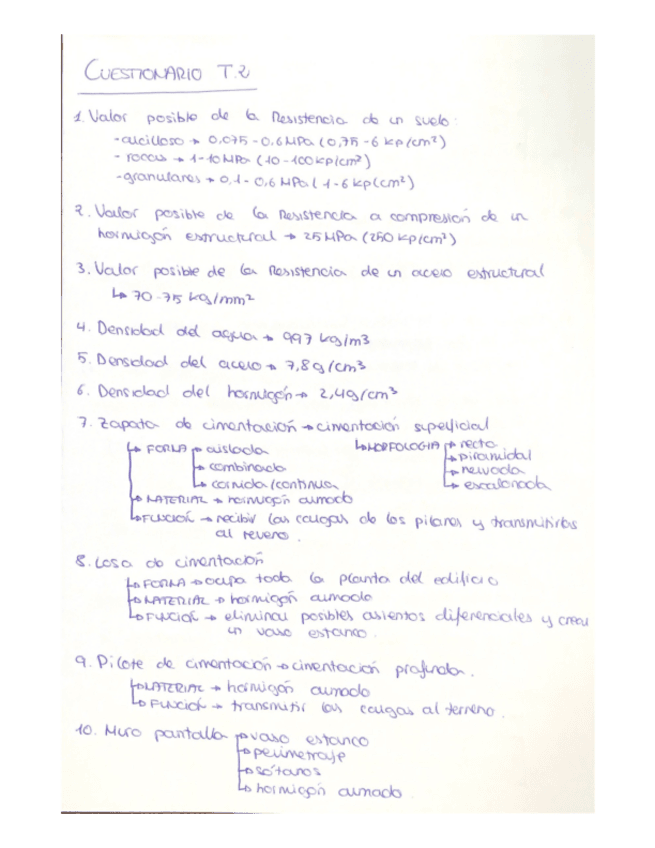 CUESTIONARIO T.2
1. Valor posible de la Resistencia de un suelo:
- arcilloso → 0,075 - 0,6 MPa (0,75 - 6 kp/cm²)
- rocas → 1 - 10 MPa (10 - 100 kp/cm²)
- granulares → 0,1 - 0,6 MPa (1 - 6 kp/cm²)
2. Valor posible de la Resistencia a compresión de un
hormigón estructural → 25 MPa (250 kp/cm²)
3. Valor posible de la Resistencia de un acero estructural
↳ 70-75 kg/mm²
4. Densidad del agua → 997 kg/m3
5. Densidad del acero → 7,8 g/cm3
6. Densidad del hormigón → 2,4 g/cm³
7. Zapata de cimentación → cimentación superficial
↳ FORMA → aislada
→ combinada
↳ corrida/continua
↳ MORFOLOGIA → recta
→ piramidal
→ nervada
↳ escalonada
→ MATERIAL → hormigón armado
↳ FUNCIÓN → recibir las cargas de los pilares y transmitirlas
al terreno.
8. Losa de cimentación
↳ FORMA → ocupa toda la planta del edificio
→ MATERIAL → hormigón armado
↳ FUNCIÓN → eliminar posibles asientos diferenciales y crear
un vaso estanco.
9. Pilote de cimentación → cimentación profunda.
↳ MATERIAL → hormigón armado
↳ FUNCIÓN → transmitir las cargas al terreno.
10. Muro pantalla → vaso estanco
→ perimetraje
→ sótanos
↳ hormigón armado